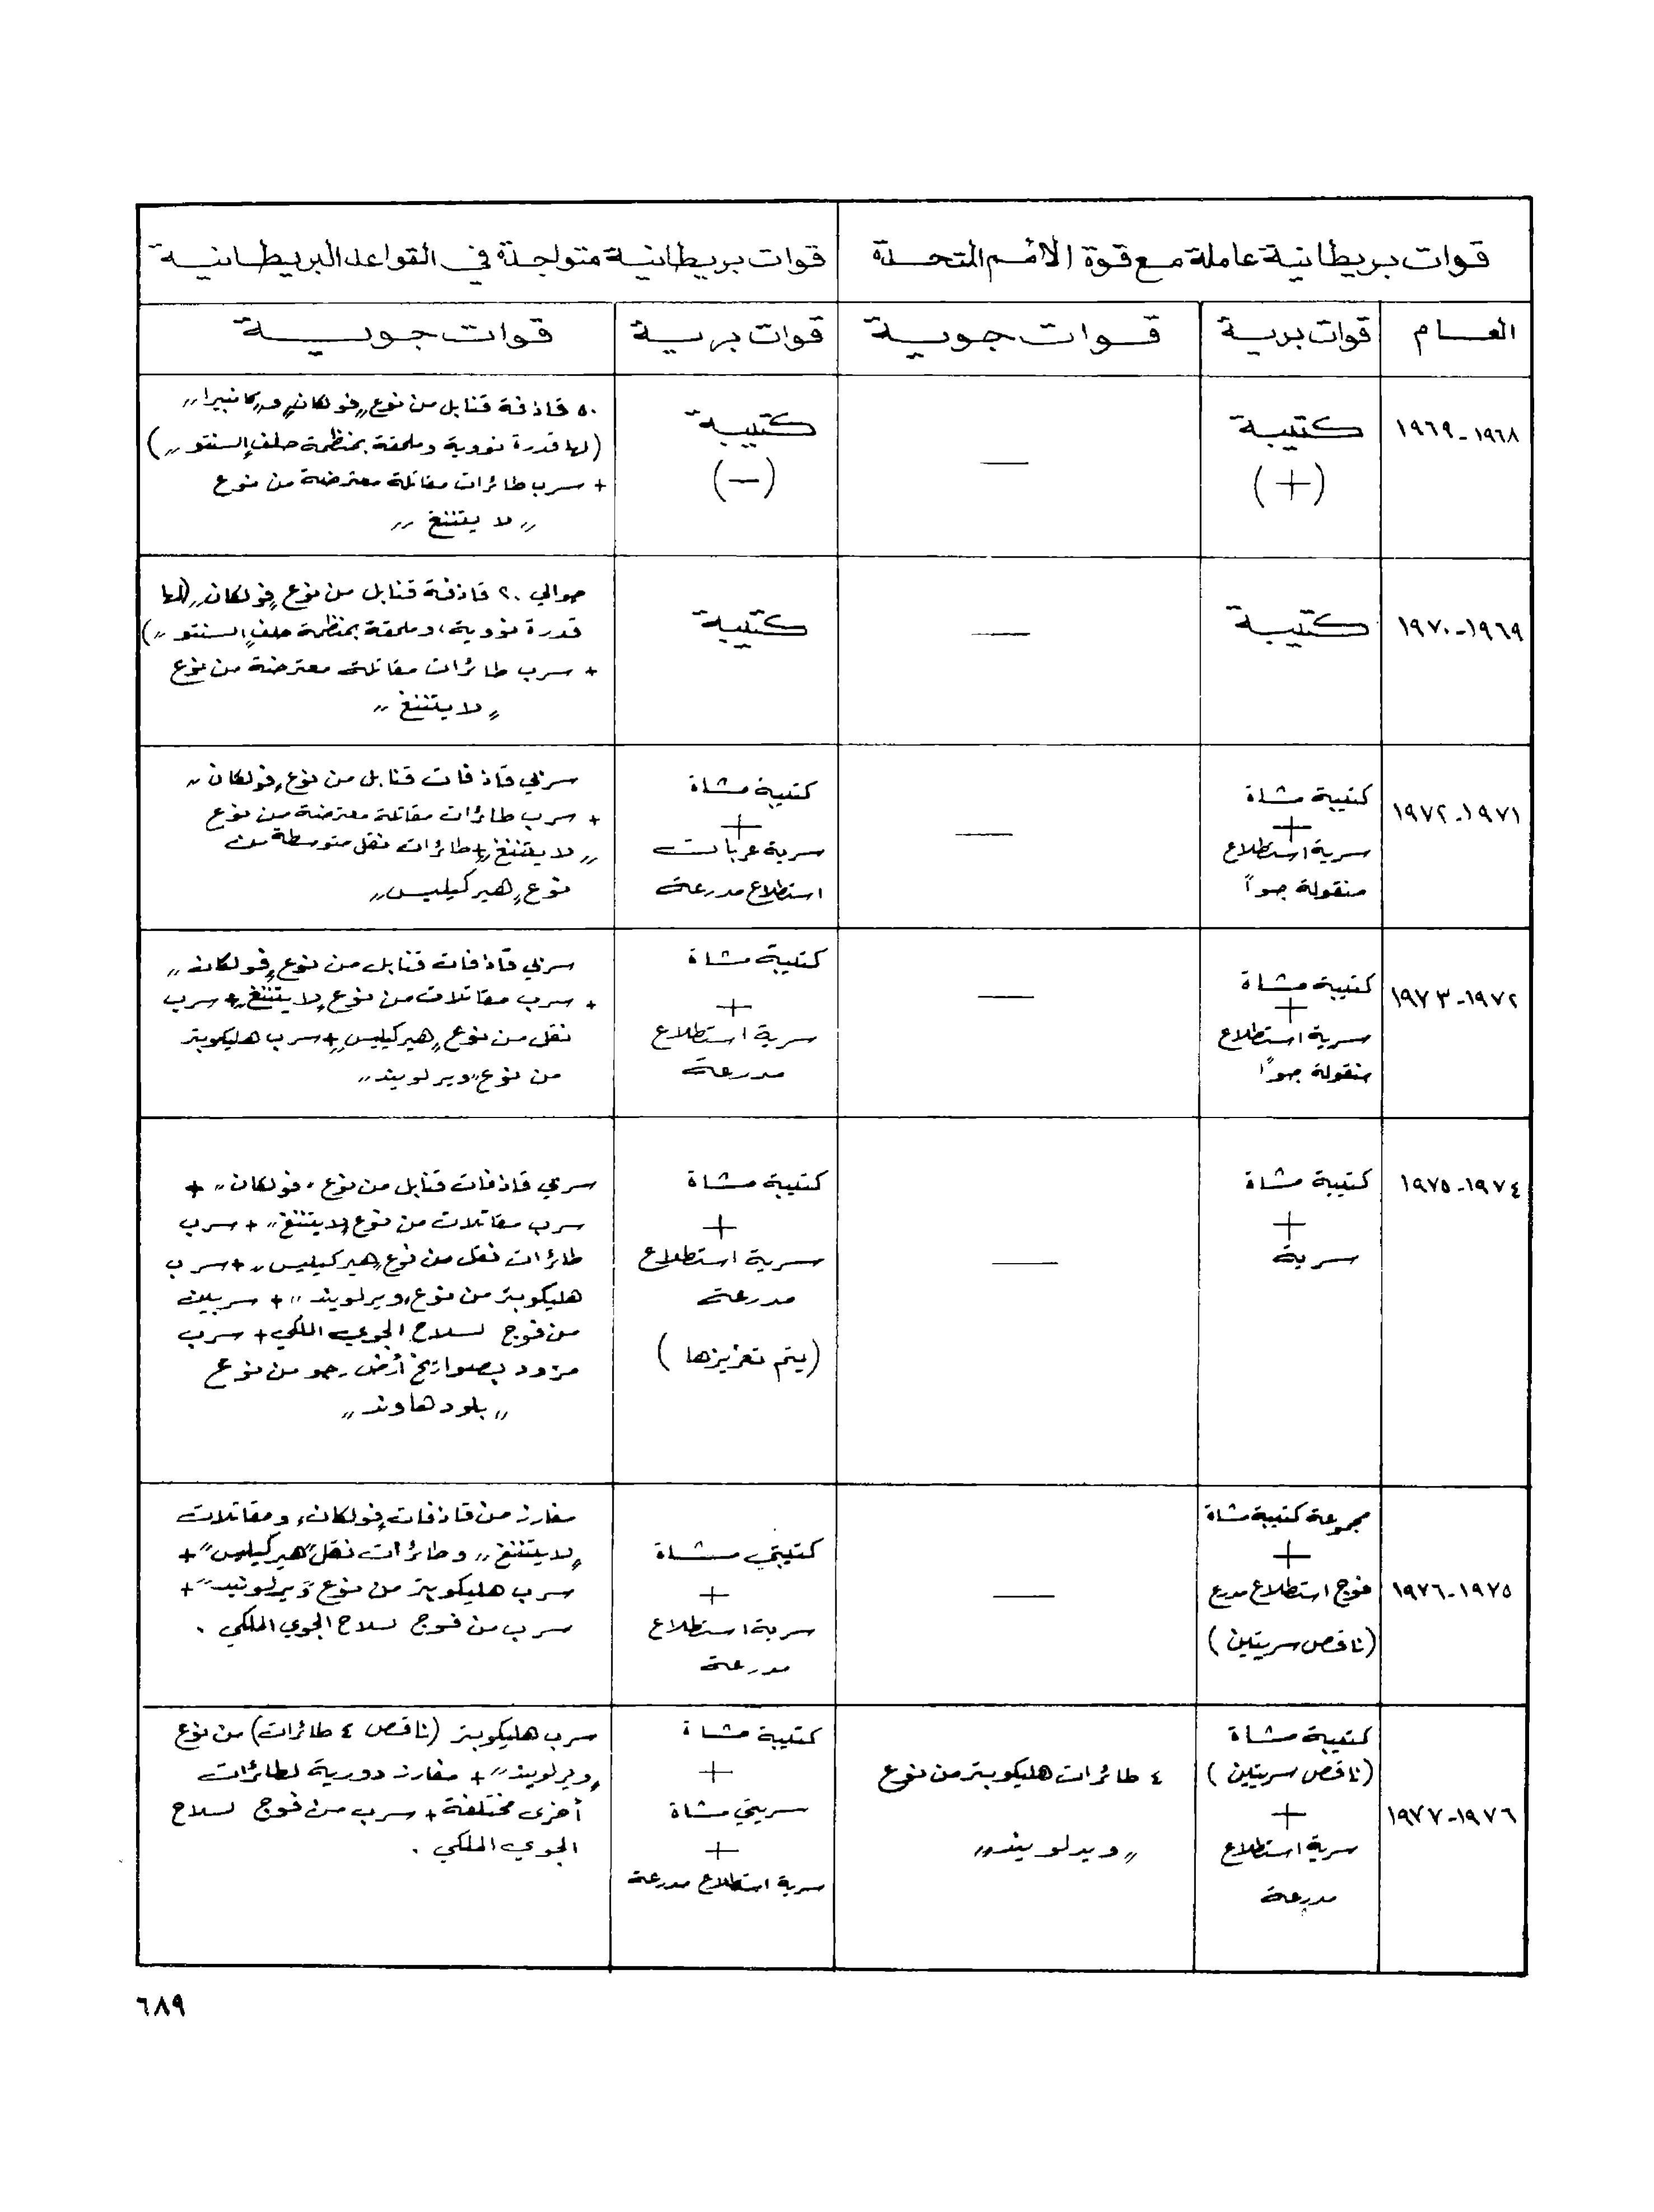 قوات بريطانية عاملة مع قوة الأمم المتحدة
قوات بريطانية متواجدة في القواعد البريطانية
العام
قوات برية
قوات جوية
قوات برية
قوات جوية
١٩٦٨-١٩٦٩
كتيبة
(+)
—
كتيبة
(-)
٥٠ قاذفة قنابل من نوع "فولكان" و"كانبيرا"
(لها قدرة نووية وملحقة بمنظمة حلف "السنتو")
+ سرب طائرات مقاتلة معترضة من نوع
"لايتننغ"
١٩٦٩-١٩٧٠
كتيبة
—
كتيبة
حوالي ٢٠ قاذفة قنابل من نوع "فولكان" (لها
قدرة نووية، وملحقة بمنظمة حلف "السنتو")
+ سرب طائرات مقاتلة معترضة من نوع
"لايتننغ"
١٩٧١-١٩٧٢
كتيبة مشاة
+
سرية استطلاع
منقولة جواً
—
كتيبة مشاة
+
سرية عربات
استطلاع مدرعة
سربي قاذفات قنابل من نوع "فولكان"
+ سرب طائرات مقاتلة معترضة من نوع
"لايتننغ" + طائرات نقل متوسطة من
نوع "هيركيليس"
١٩٧٢-١٩٧٣
كتيبة مشاة
+
سرية استطلاع
منقولة جواً
—
كتيبة مشاة
+
سرية استطلاع
مدرعة
سربي قاذفات قنابل من نوع "فولكان"
+ سرب مقاتلات من نوع "لايتننغ" + سرب
نقل من نوع "هيركيليس" + سرب هليكوبتر
من نوع "ويرلويند"
١٩٧٤-١٩٧٥
كتيبة مشاة
+
سرية
—
كتيبة مشاة
+
سرية استطلاع
مدرعة
(يتم تعزيزها)
سربي قاذفات قنابل من نوع "فولكان" +
سرب مقاتلات من نوع "لايتننغ" + سرب
طائرات نقل من نوع "هيركيليس" + سرب
هليكوبتر من نوع "ويرلويند" + سربين
من فوج لسلاح الجوي الملكي + سرب
مزود بصواريخ أرض-جو من نوع
"بلودهاوند"
١٩٧٥-١٩٧٦
مجموعة كتيبة مشاة
+
فوج استطلاع مدرع
(ناقص سريتين)
—
كتيبتي مشاة
+
سرية استطلاع
مدرعة
مفارز من قاذفات "فولكان" ومقاتلات
"لايتننغ" وطائرات نقل "هيركيليس" +
سرب هليكوبتر من نوع "ويرلويند" +
سرب من فوج لسلاح الجوي الملكي .
١٩٧٦-١٩٧٧
كتيبة مشاة
(ناقص سريتين)
+
سرية استطلاع
مدرعة
٤ طائرات هليكوبتر من نوع
"ويرلويند"
كتيبة مشاة
+
سريتي مشاة
+
سرية استطلاع مدرعة
سرب هليكوبتر (ناقص ٤ طائرات) من نوع
"ويرلويند" + مفارز دورية لطائرات
أخرى مختلفة + سرب من فوج لسلاح
الجوي الملكي .
٦٨٩